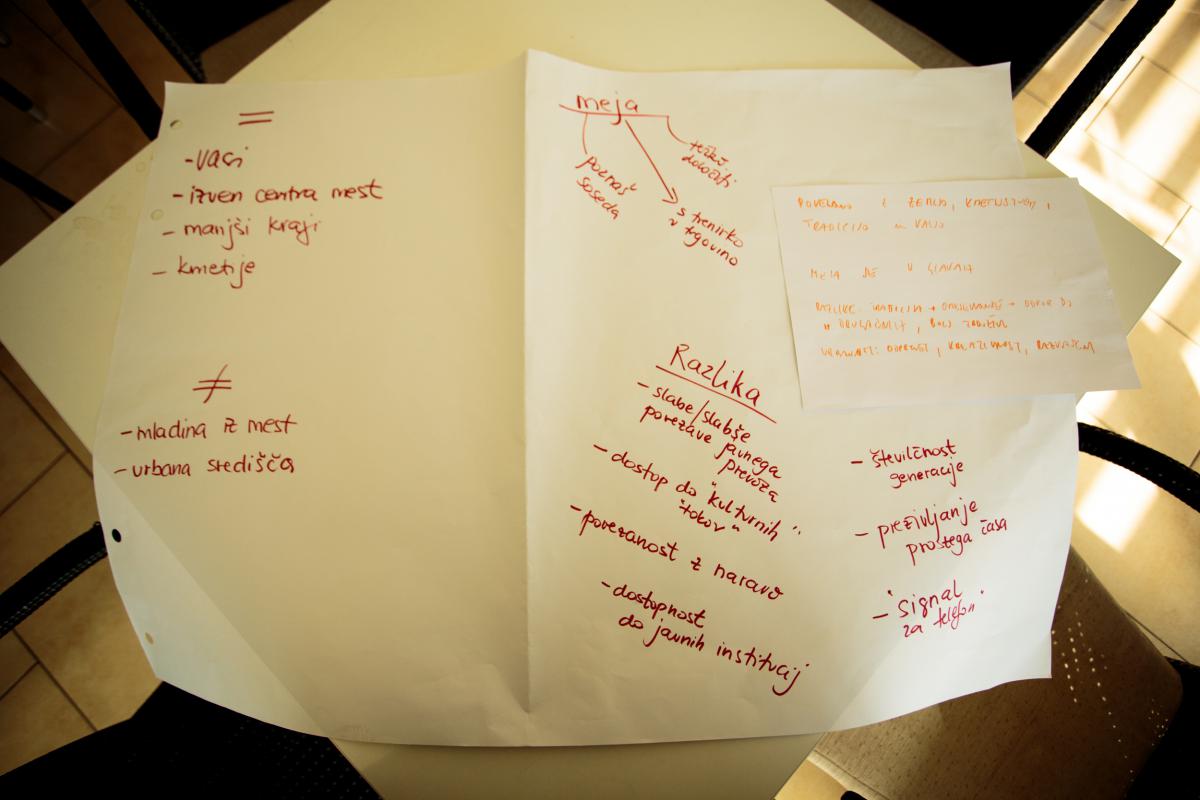 =
- vasi
- izven centra mest
- manjši kraji
- kmetije
≠
- mladina iz mest
- urbana središča
meja
poznaš
soseda
s trenirko
v trgovino
težko
določiti
Razlika
- slabe/slabše
povezave javnega
prevoza
- dostop do "kulturnih"
"tokov"
- povezanost z naravo
- dostopnost
do javnih institucij
- številčnost
generacije
- preživljanje
prostega časa
- "signal
za telefon"
POVEZANO Z ZEMLJO,
TRADICIJO IN VASJO
MEJA JE V GLAVAH
RAZLIKE: → → ODPOR DO
DRUGAČNIH, BOLJ